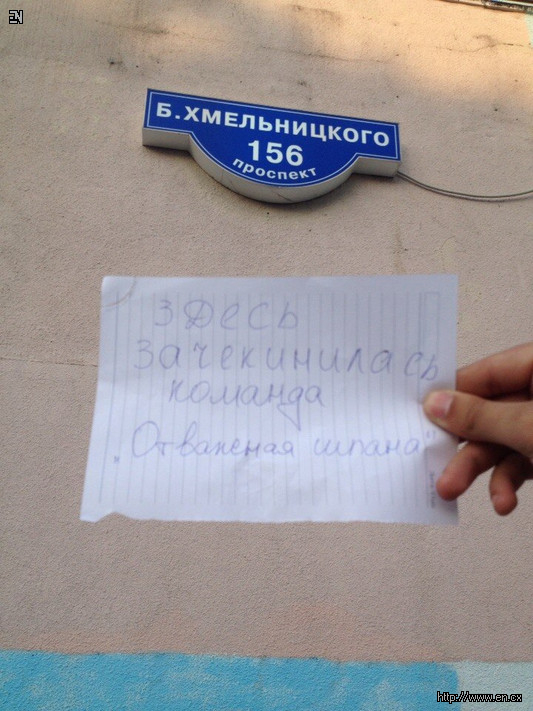 EN
Б.ХМЕЛЬНИЦКОГО
156
проспект
здесь
зачекинилась
команда
„Отважная шпана"
http://www.en.cx